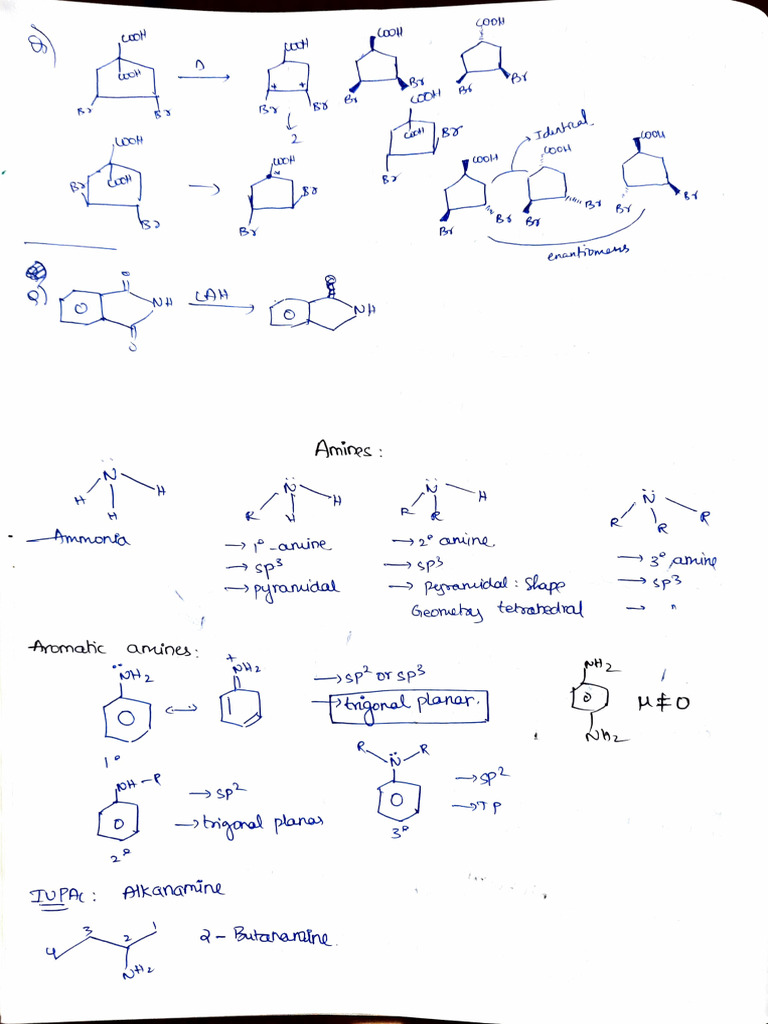 Q)
COOH
COOH
Δ
Br Br
COOH
Br Br
2
COOH
Br Br
COOH
Br Br
COOH
COOH
Br
Br
COOH
COOH
Br
Br
COOH
Br
Br
Identical
COOH
Br
Br
COOH
Br
Br
COOH
Br
Br
enantiomers
Q)
O
NH
O
LAH
NH
Amines:
N̈
H H H
N̈
R H H
N̈
R R H
N̈
R R R
- Ammonia
→ 1°-amine
→ sp3
→ pyramidal
→ 2° amine
→ sp3
→ pyramidal: Shape
Geometry tetrahedral
→ 3° amine
→ sp3
→ "
Aromatic amines:
N̈H2
1°
+
NH2
→ sp2 or sp3
→ trigonal planar.
NH2
NH2
μ ≠ 0
NH-R
2°
→ sp2
→ trigonal planar
R N̈ R
3°
→ sp2
→ TP
IUPAC: Alkanamine
4 3 2 1
NH2
2-Butanamine.